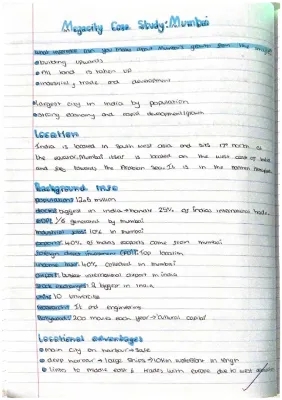 Megacity Case Study: Mumbai
What inferences can you make about Mumbai's growth from the
• building upwards
• All land is taken up
• industrial, trade and development
• largest city in India by population
• strong economy and rapid development/growth
Location
India is located in South west asia and sits 19° north of
the equator. Mumbai is located on the west coast of India
and towards the Arabian Sea. It is in the northern
Background info
population: 12.5 million
docks: biggest in india + handle 25% of Indias international trade
GDP: 1/6 generated by mumbai
industrial jobs: 10% in mumbai
exports: 40% of Indias exports come from mumbai
foreign direct investment (FDI): top location
income tax: 40% collected in mumbai
airport: busiest international airport in india
stock exchanges: 2 biggest in india
unis: 10 universities
IT and engineering
Bollywood: 200 movies each year → cultural capital
Locational advantages
• main city on harbour → safe
• deep harbour → large ships → 10km waterfront in length
• links to middle east & trades with europe due to west